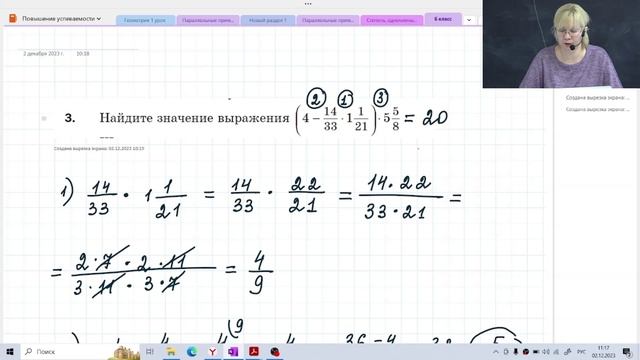 Повышение успеваемости
Геометрия 1 урок
Параллельные прям...
Новый раздел 1
Параллельные прям...
Степень, одночлены...
6 класс
2 декабря 2023 г. 10:18
3. Найдите значение выражения (4 − 14/33 · 1 1/21) · 5 5/8 = 20
2 1 3
Создана вырезка экрана: 02.12.2023 10:19
1) 14/33 · 1 1/21 = 14/33 · 22/21 = 14·22/33·21 =
= 2·7·2·11/3·11·3·7 = 4/9
Создана вырезка экрана: ...
Создана вырезка экрана: ...
Поиск
РУС
11:17
02.12.2023